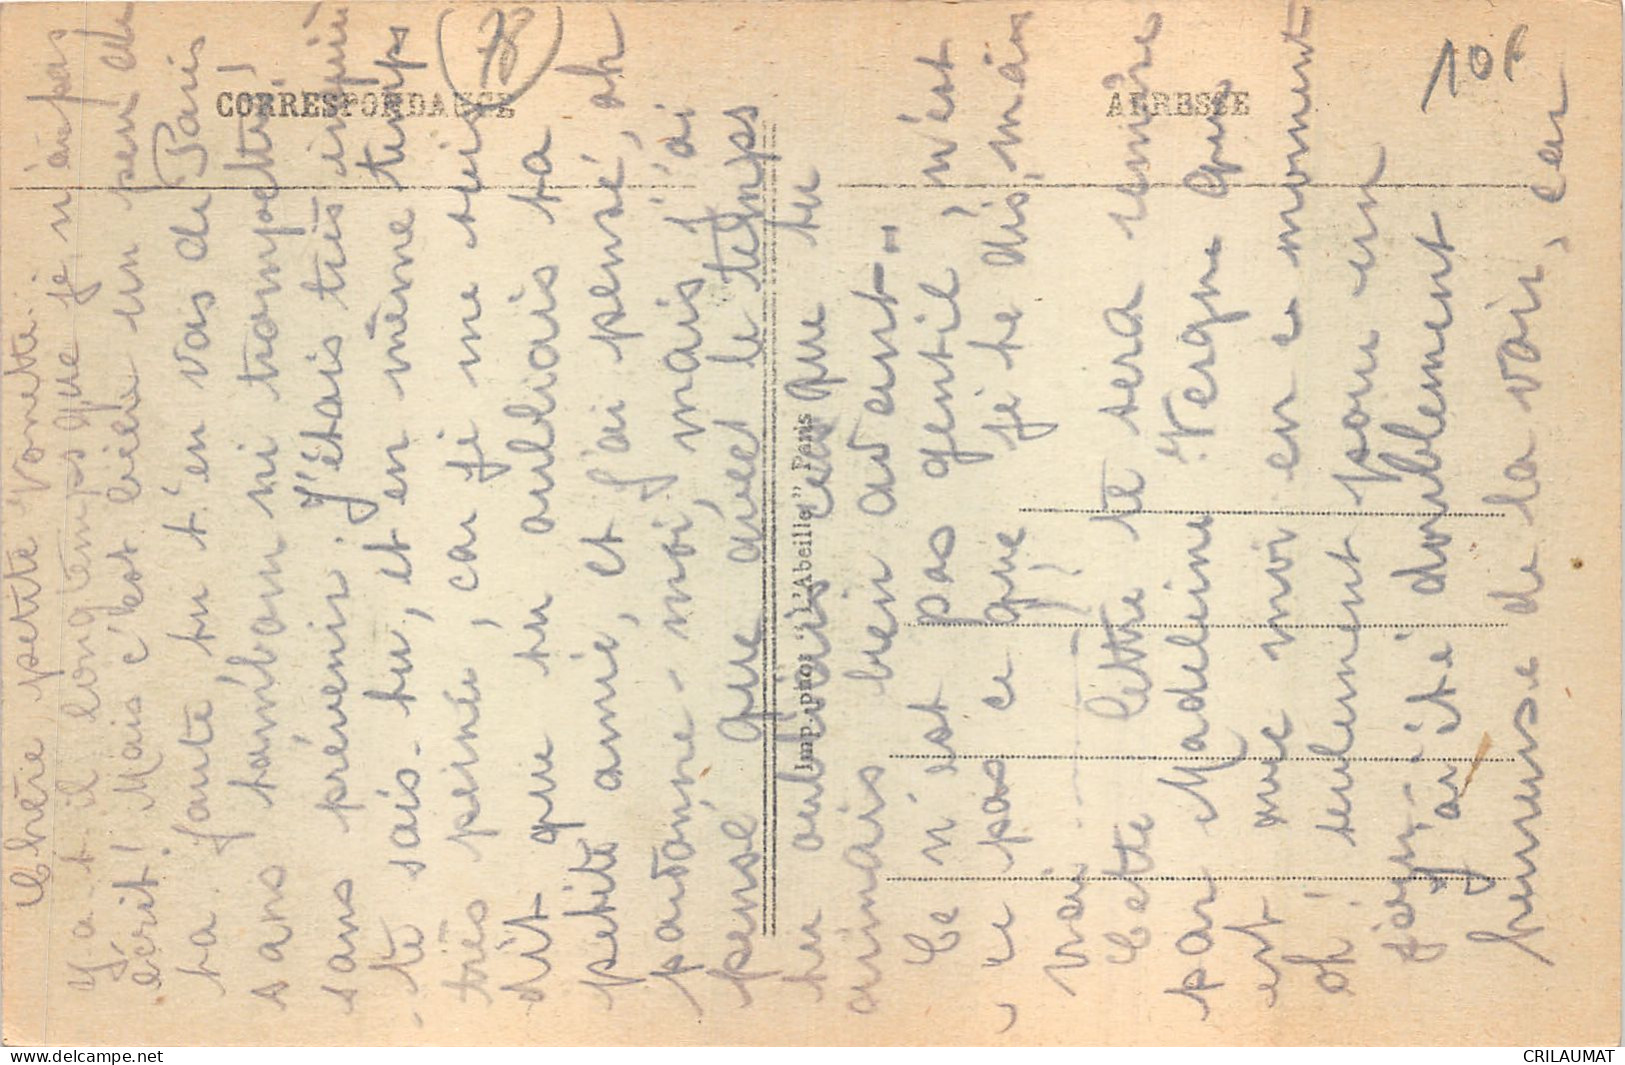 CORRESPONDANCE
ADRESSE
10F
Imp. phot. "L'Abeille" Paris
Chère petite Vonette.
Y-a-t-il longtemps que je n'ai pas
écrit! Mais c'est bien un peu de
ta faute, tu t'en vas de Paris
sans tambour ni trompette!
sans prévenir. J'étais très inquiè
te sais-tu, et en même temps
très peinée, car je me suis
dit que tu oubliais ta
petite amie, et j'ai pensé, oh
pardonne-moi, mais j'ai
pensé que avec le temps
tu oubliais ceux que tu
aimais bien avant..
Ce n'est pas gentil, n'est
ce pas ce que je te dis, mais
vrai!
Cette lettre te sera remise
par Madeleine Vergne que
est avec moi en ce moment
oh! seulement pour un
jour.
J'ai été doublement
heureuse de la voir, car
CRILAUMAT